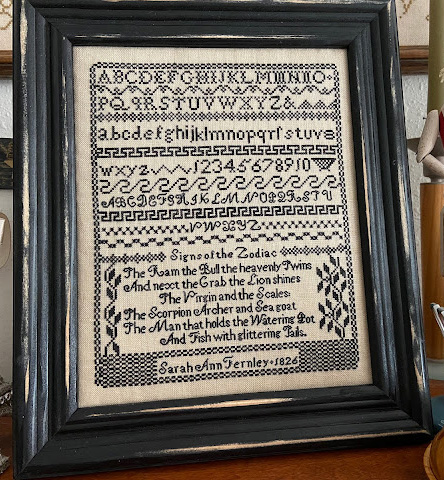 ABCDEFGHIJKLMNO
PQRSTUVWXYZ&
abcdefghijklmnopqrſstuv
wxyz 1234567891O
ABCDEFGHIKLMNOPQRSTU
VWXYZ
Signs of the Zodiac
The Ram the Bull the heavenly Twins
And next the Crab the Lion shines
The Virgin and the Scales:
The Scorpion Archer and Sea goat
The Man that holds the Watering Pot
And Fish with glittering Tails.
Sarah Ann Fernley · 1826